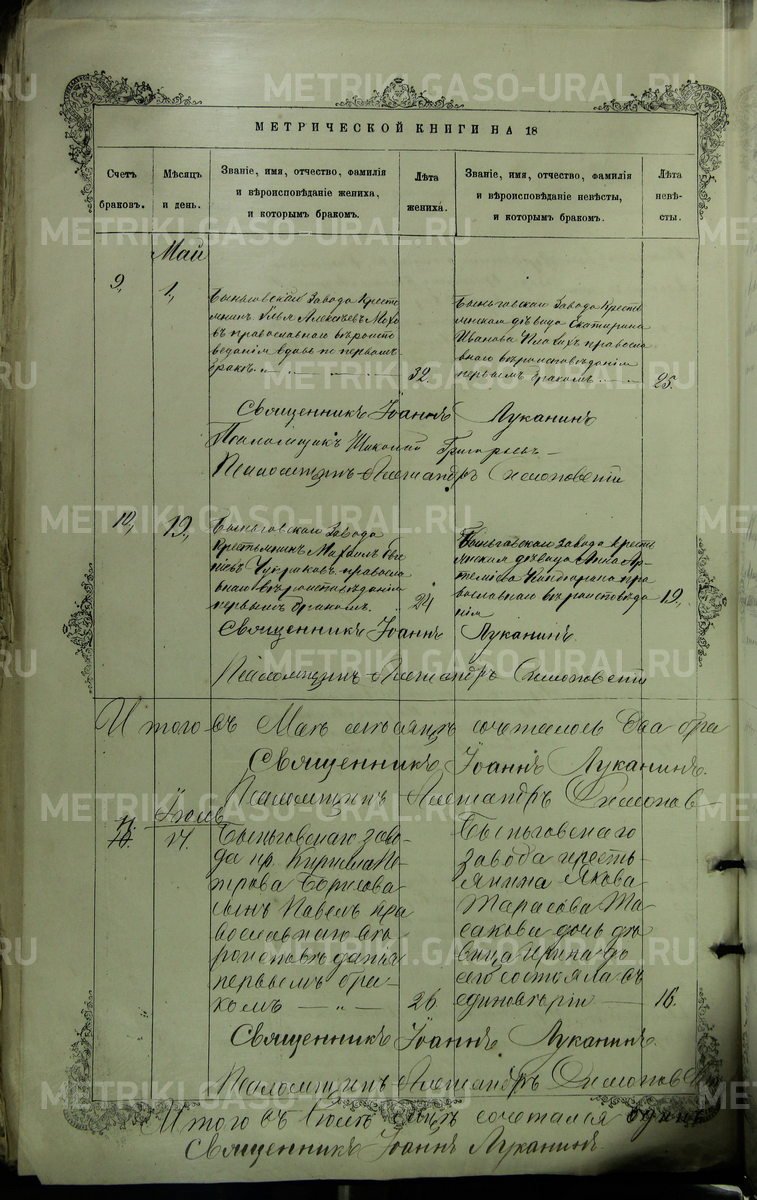 МЕТРИЧЕСКОЙ КНИГИ НА 18
Счетъ браковъ.
Мѣсяцъ и день.
Званіе, имя, отчество, фамилія и вѣроисповѣданіе жениха, и которымъ бракомъ.
Лѣта жениха.
Званіе, имя, отчество, фамилія и вѣроисповѣданіе невѣсты, и которымъ бракомъ.
Лѣта невѣсты.
Май
9,
1,
Быньговскаго Завода Кресть
янинъ Илья Алексѣевъ
православнаго вѣроиспо
вѣданія вдовъ по первомъ
бракѣ
32.
Быньговскаго Завода Кресть
янская дѣвица Екатерина
Иванова православ
наго вѣроисповѣданія
первымъ бракомъ
25.
Священникъ Іоаннъ Луканинъ
Псаломщикъ Николай
Псаломщикъ Александръ
10,
19,
Быньговскаго Завода
Крестьянинъ Михаилъ
правосла
внаго вѣроисповѣданія
первымъ бракомъ.
24
Быньговскаго Завода Кресть
янская дѣвица Анна Ар
темьева пра
вославнаго вѣроисповѣда
нія
19,
Священникъ Іоаннъ Луканинъ
Псаломщикъ Александръ
Итого въ Маѣ мѣсяцѣ сочеталось два бра
Священникъ Іоаннъ Луканинъ.
Псаломщикъ Александръ
Іюль
11.
17.
Быньговскаго заво-
да кр. Кирилла Пе
трова Борисова
сынъ Павелъ пра
вославнаго вѣ
роисповѣданія
первымъ бра-
комъ
26
Быньговскаго
завода кресть-
янина Якова
Тарасова
дочь дѣ
вица Ирина до
сего состояла въ
единовѣріи
16.
Священникъ Іоаннъ Луканинъ.
Псаломщикъ Александръ
Итого въ Іюлѣ сочетался одинъ
Священникъ Іоаннъ Луканинъ.
METRIKI.GASO-URAL.RU